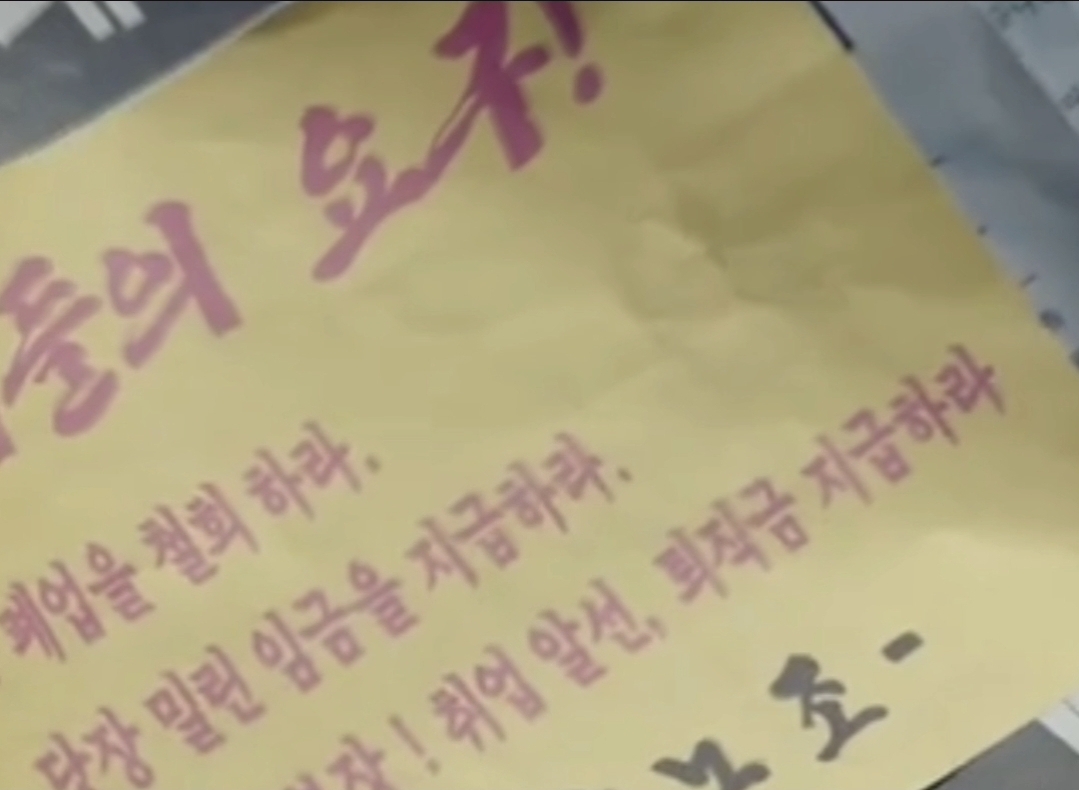 들의 요구!
폐업을 철회 하라.
당장 밀린 임금을 지급하라.
! 취업 알선, 퇴직금 지급하라
노조 -